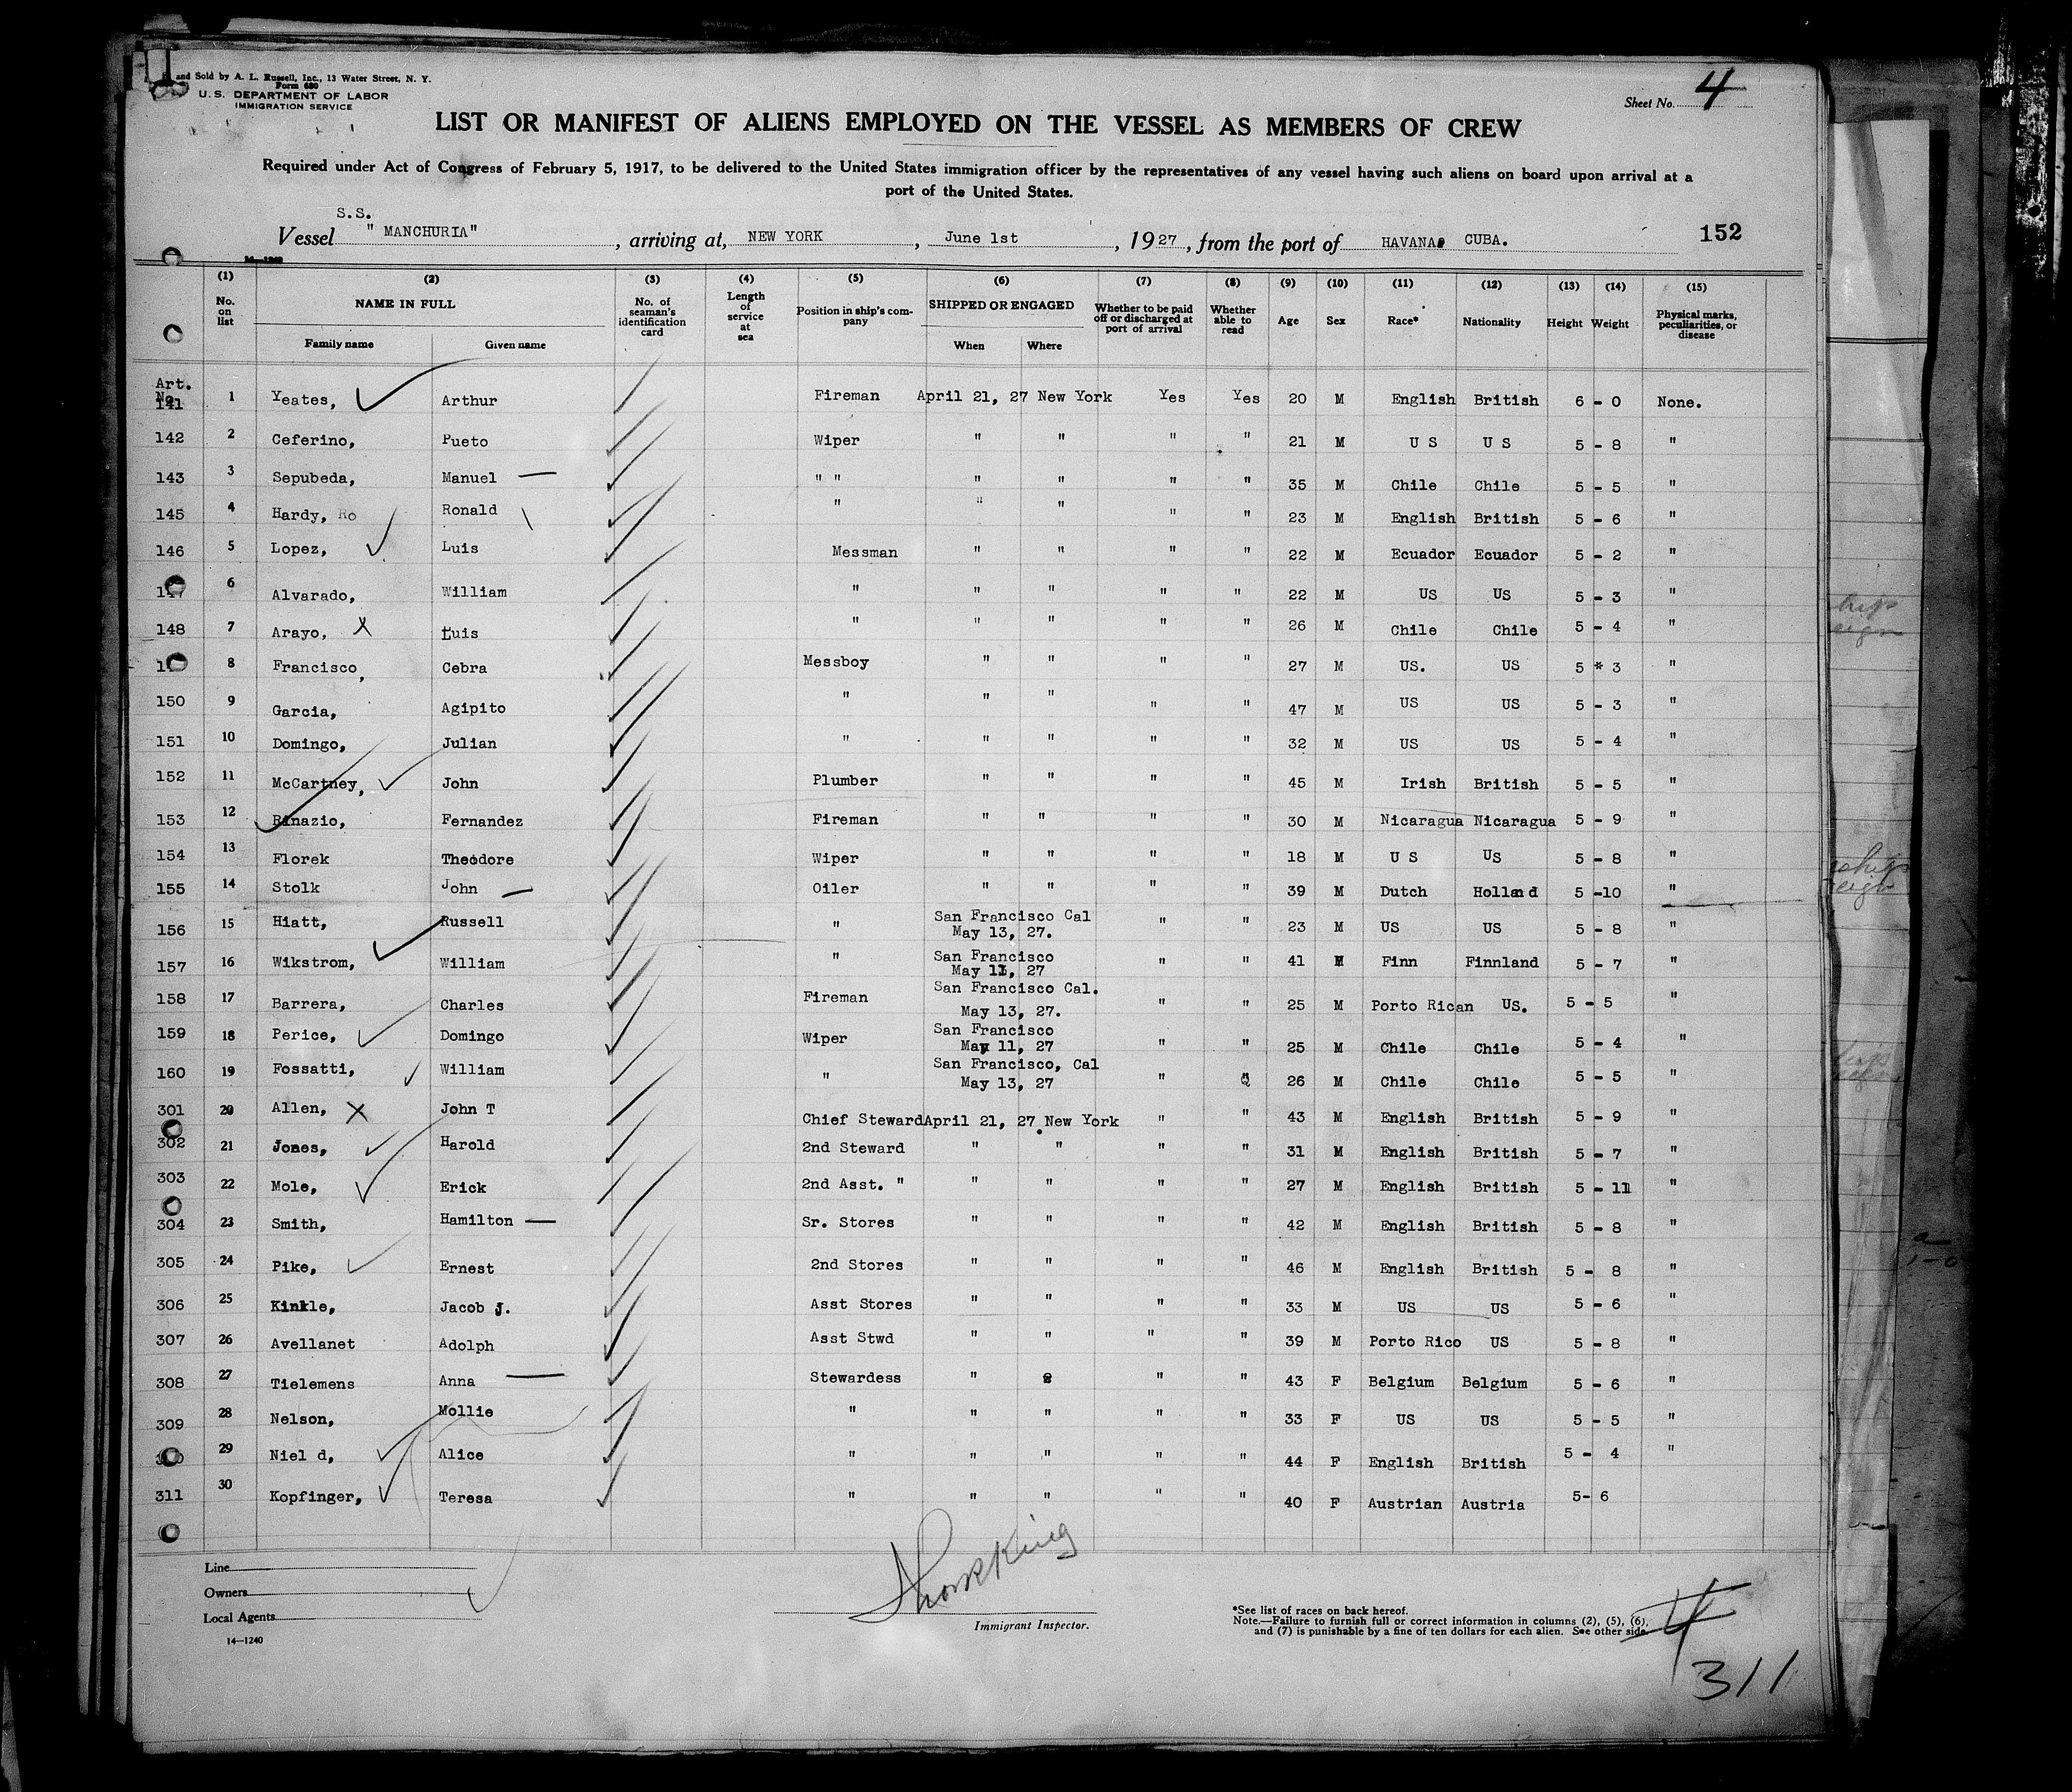 and Sold by A. L. Russell, Inc., 13 Water Street, N. Y.
Form 680
U. S. DEPARTMENT OF LABOR
IMMIGRATION SERVICE
Sheet No. 4
LIST OR MANIFEST OF ALIENS EMPLOYED ON THE VESSEL AS MEMBERS OF CREW
Required under Act of Congress of February 5, 1917, to be delivered to the United States immigration officer by the representatives of any vessel having such aliens on board upon arrival at a
port of the United States.
S.S.
Vessel " MANCHURIA" , arriving at, NEW YORK , June 1st , 1927 , from the port of HAVANA CUBA. 152
(1) (2) (3) (4) (5) (6) (7) (8) (9) (10) (11) (12) (13) (14) (15)
No. on list NAME IN FULL Family name Given name No. of seaman's identification card Length of service at sea Position in ship's company SHIPPED OR ENGAGED When Where Whether to be paid off or discharged at port of arrival Whether able to read Age Sex Race* Nationality Height Weight Physical marks, peculiarities, or disease
Art.
No.
141 1 Yeates, Arthur Fireman April 21, 27 New York Yes Yes 20 M English British 6 - 0 None.
142 2 Ceferino, Pueto Wiper " " " " 21 M U S U S 5 - 8 "
143 3 Sepubeda, Manuel " " " " " " 35 M Chile Chile 5 - 5 "
145 4 Hardy, Ro Ronald " " " " " 23 M English British 5 - 6 "
146 5 Lopez, Luis Messman " " " " 22 M Ecuador Ecuador 5 - 2 "
147 6 Alvarado, William " " " " " 22 M US US 5 - 3 "
148 7 Arayo, Luis " " " " " 26 M Chile Chile 5 - 4 "
8 Francisco, Cebra Messboy " " " " 27 M US. US 5 * 3 "
150 9 Garcia, Agipito " " " " " 47 M US US 5 - 3 "
151 10 Domingo, Julian " " " " " 32 M US US 5 - 4 "
152 11 McCartney, John Plumber " " " " 45 M Irish British 5 - 5 "
153 12 Rinazio, Fernandez Fireman " " " " 30 M Nicaragua Nicaragua 5 - 9 "
154 13 Florek Theodore Wiper " " " " 18 M U S US 5 - 8 "
155 14 Stolk John Oiler " " " " 39 M Dutch Holland 5 -10 "
156 15 Hiatt, Russell " San Francisco Cal May 13, 27. " " 23 M US US 5 - 8 "
157 16 Wikstrom, William " San Francisco May 11, 27 " " 41 M Finn Finnland 5 - 7 "
158 17 Barrera, Charles Fireman San Francisco Cal. May 13, 27. " " 25 M Porto Rican US. 5 - 5 "
159 18 Perice, Domingo Wiper San Francisco May 11, 27 " " 25 M Chile Chile 5 - 4 "
160 19 Fossatti, William " San Francisco, Cal May 13, 27 " " 26 M Chile Chile 5 - 5 "
301 20 Allen, John T Chief Steward April 21, 27 New York " " 43 M English British 5 - 9 "
302 21 Jones, Harold 2nd Steward " " " " 31 M English British 5 - 7 "
303 22 Mole, Erick 2nd Asst. " " " " " 27 M English British 5 - 11 "
304 23 Smith, Hamilton Sr. Stores " " " " 42 M English British 5 - 8 "
305 24 Pike, Ernest 2nd Stores " " " " 46 M English British 5 - 8 "
306 25 Kinkle, Jacob J. Asst Stores " " " " 33 M US US 5 - 6 "
307 26 Avellanet Adolph Asst Stwd " " " " 39 M Porto Rico US 5 - 8 "
308 27 Tielemens Anna Stewardess " " " 43 F Belgium Belgium 5 - 6 "
309 28 Nelson, Mollie " " " " " 33 F US US 5 - 5 "
29 Niel d, Alice " " " " " 44 F English British 5 - 4 "
311 30 Kopfinger, Teresa " " " " " 40 F Austrian Austria 5- 6
Line
Owners
Local Agents
14—1240
Immigrant Inspector.
*See list of races on back hereof.
Note.—Failure to furnish full or correct information in columns (2), (5), (6),
and (7) is punishable by a fine of ten dollars for each alien. See other side.
4
311